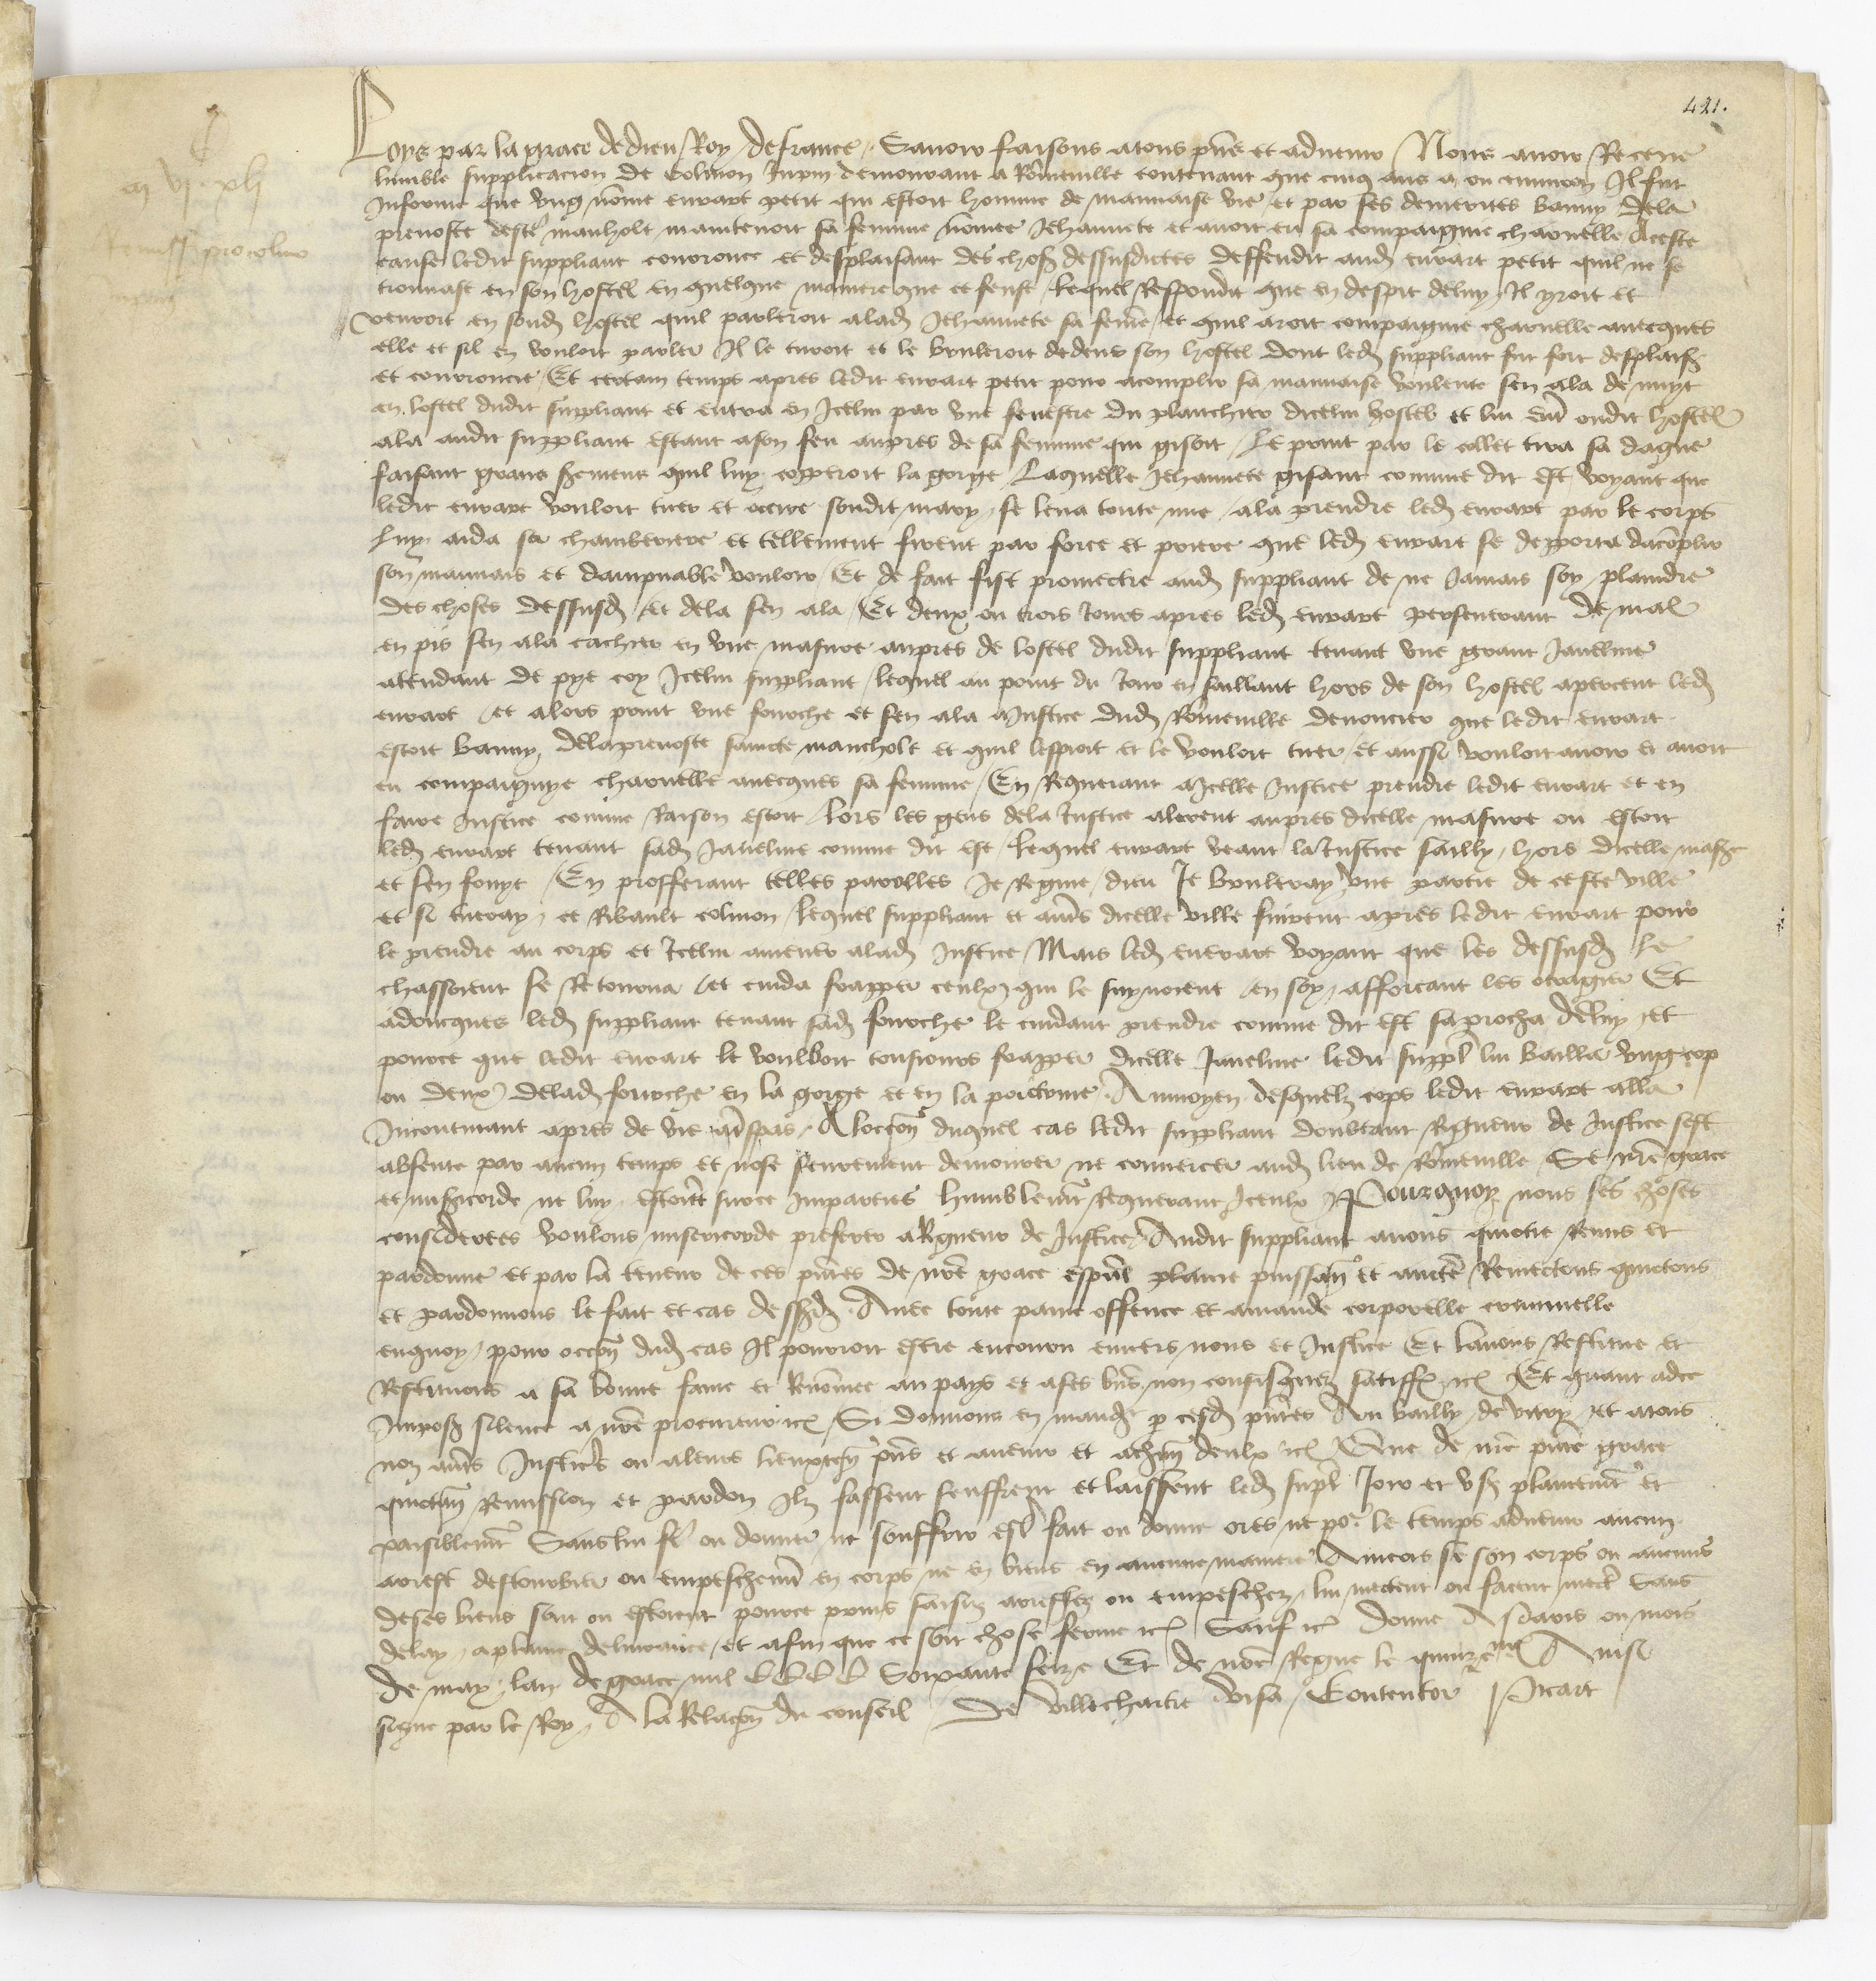 421.
en vi xli
Remissio pro colino
Loys par la grace de dieu Roy de france Savoir faisons a tous pñs et advenir Nous avoir Receue
lumble supplicacion de Colinon demourant a Romeville contenant que cinq ans a ou environ Il fut
Informé que ung nõme evrart petit qui estoit homme de mauvaise vie et par ses demerites banny dela
prevosté de ste manholt maintenoit sa femme nõmee Jehannete et avoit eu sa compaignie charnelle A ceste
cause ledit suppliant couroucé et desplaisant des choses dessusdictes deffendit aud evrart petit quil ne se
trouvast en son hostel en quelque maniere que ce feust / lequel Respondit que en despit de luy Il yroit et
vendroit en sond hostel quil parleroit a lad Jehannete sa feme et quil aroit compaignie charnelle avecques
elle et sil en vouloit parler Il le tueroit et le bruleroit dedens son hostel dont led suppliant fut fort desplaisant
et couroucié Et certain temps apres ledit evrart petit pour acomplir sa mauvaise voulente sen ala de nuyt
en lostel dudit suppliant et entra en Icelui par une fenestre du planchier dicelui hostel et lui entré oudit hostel
ala audit suppliant estant a son feu aupres de sa femme qui gisoit / le print par le collet tira sa dague
faisant grans sermens quil luy copperoit la gorge / Laquelle Jehannete gisant comme dit est voyant que
ledit evrart vouloit tuer et occire sondit mary se leva toute nue / ala prendre led evrart par le corps
luy aida sa chamberiere et tellement firent par force et priere que led evrart se depporta dacomplir
son mauvais et dampnable vouloir Et de fait fist promectre aud suppliant de ne Jamais soy plaindre
des choses dessusd et de la sen ala / Et deux ou trois Jours apres led evrart perseverant de mal
en pis sen ala cachier en une masure aupres de lostel dudit suppliant tenant une grant Javeline
atendant de pye coy Icelui suppliant / lequel au point du Jour en saillant hors de son hostel apercent led
evrart / et alors print une fourche et sen ala a Justice dud Romeville denoncier que ledit evrart
estoit banny de la prevosté saincte maneholt et quil lespioit et le vouloit tuer / et aussi vouloit avoir et avoit
eu compaignye charnelle avecques sa femme / En Requerant a Icelle Justice prendre ledit evrart et en
faire Justice comme Raison estoit / Lors les gens de la Justice alerent aupres dicelle masure ou estoit
led evrart tenant sad Javeline comme dit est / lequel evrart veant la Justice sailly hors dicelle masure
et sen fouyt / En profferant telles parolles Je Regnie dieu Je bruleray une partie de ceste ville
et si tueray ce Ribault colinon / lequel suppliant et autres dicelle ville suirent apres ledit evrart pour
le prendre au corps et Icelui amener a lad Justice / Mais led evrart voyant que les dessusd le
chassoient se Retourna / et cuida frapper ceulx qui le suyvoient / en soy afforcant les oultragier Et
adoncques led suppliant tenant sad fourche le cuidant prendre comme dit est saprocha de luy / et
pource que ledit evrart le vouloit tousiours frapper dicelle Javeline ledit suppl lui bailla ung cop
ou deux de lad fourche en la gorge et en la poictrine Au moyen desquelz cops ledit evrart alla
Incontinant apres de vie a trespas / A loccon duquel cas ledit suppliant doubtant Rigueur de Justice sest
absente par aucun temps et nose seurement demourer ne converser aud lieu de Romeville Se nre grace
et misericorde ne luy estoient sur ce Imparties humblemt Requerant Icculx Pourquoy nous ses choses
considerees voulons misericorde preferer a Rigueur de Justice Audit suppliant avons quicté Remis et
pardonné et par la teneur de ces pntes de nre grace espal plaine puissance et aucte Remectons quictons
et pardonnons le fait et cas dessusd Avec toute paine offence et amande corporelle criminelle
enquoy pour occon dud cas Il pourroit estre encouru envers nous et Justice Et lavons Restitué et
Restituons a sa bonne fame et Renõmee au pays et a ses bns non confisquez satisffon etc Et quant adce
Imposons silence a nre procureur etc Si donnons en mandt p cesd pntes Au bailly de vitry et a tous
noz autres Justiciers ou a leurs lieuxtens pns et avenir et a chun deulx etc Que de nre pnte grace
quictance Remission et pardon Ilz facent seuffrent et laissent led suppl Joir et user plainemt et
paisiblemt Sans lui fe ou donner ne souffrir estre fait ou donne ores ne po le temps advenir aucun
arrest destourbier ou empeschemt en corps ne en biens en aucune maniere Aincois se son corps ou aucuns
de ses biens sont ou estoient pource prins saisiz arrestez ou empeschez lui mectent ou facent mectre sans
delay a plaine delivrance / et afin que ce soit chose ferme etc Sauf etc Donne A paris ou mois
de may lan de grace mil CCCC soixante seize Et de nre Regne le quinzeme Ainsi
signe par le Roy A la Relacon du conseil De villechartre Visa Contentor Picart